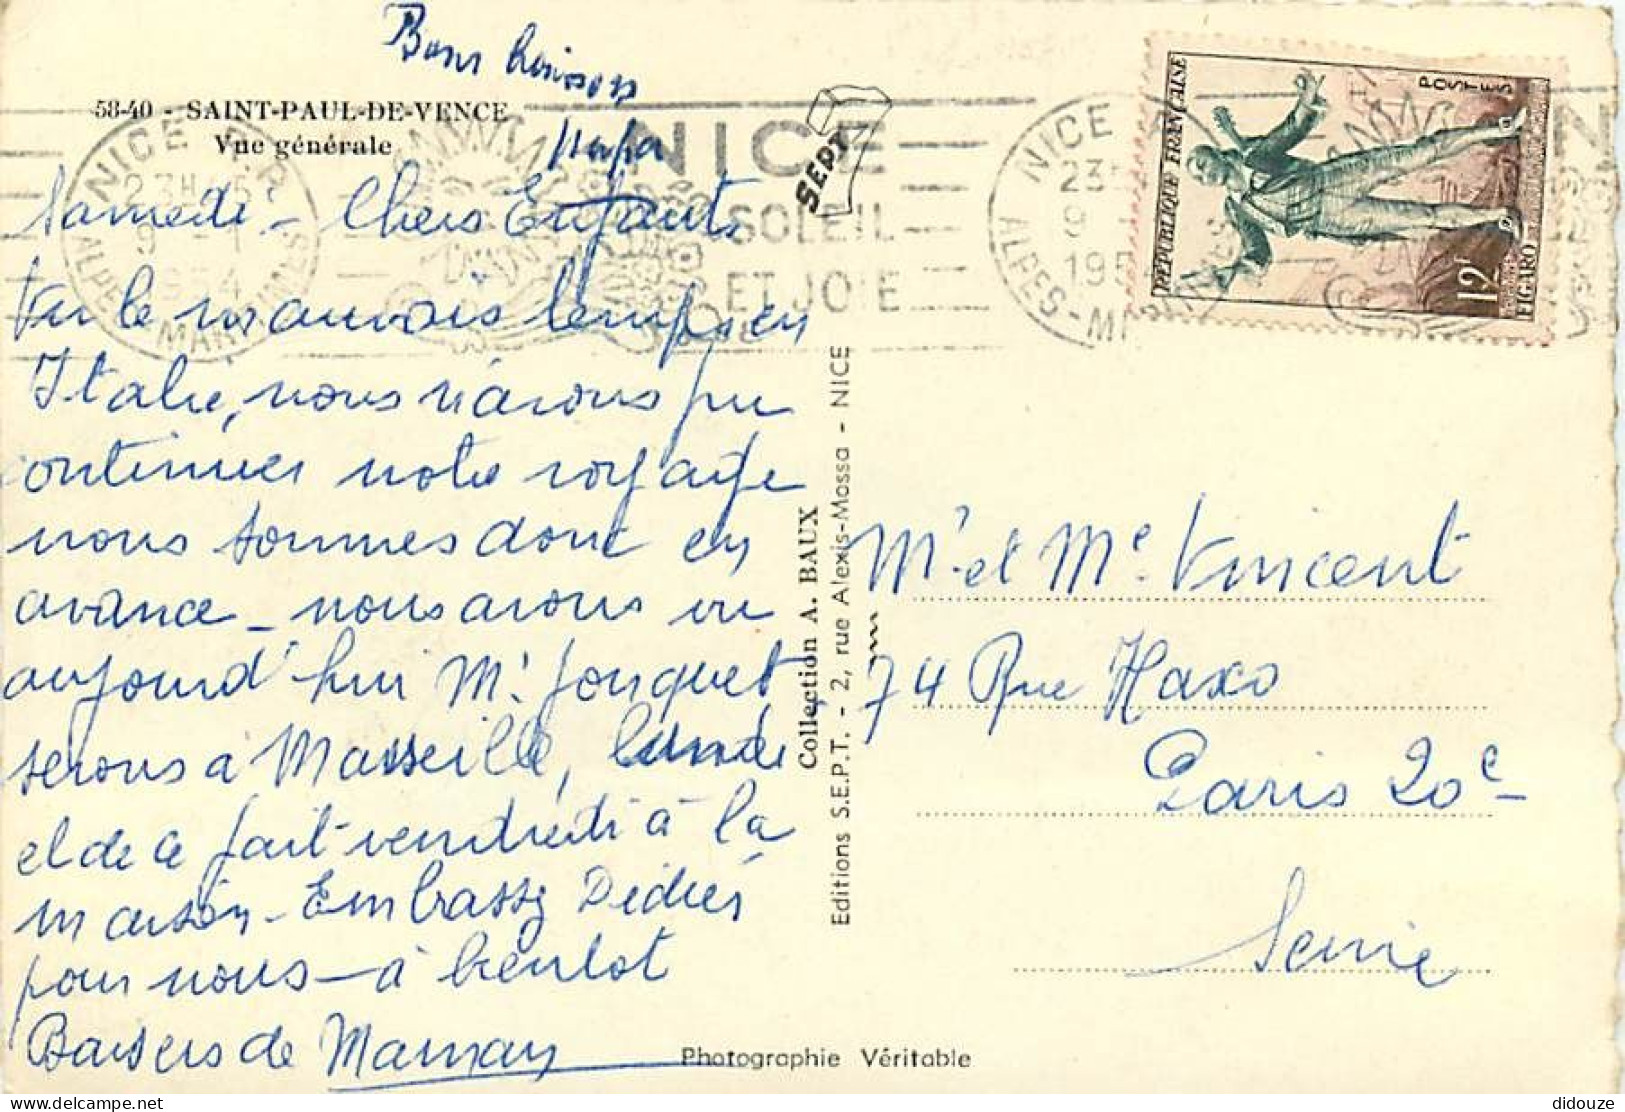 Bons baisers
Papa
58-40 - SAINT-PAUL-DE-VENCE
Vue générale
Samedi - Chers Enfants
Vu le mauvais temps en
Italie, nous n'avons pu
continuer notre voyage
nous sommes donc en
avance - nous avons vu
aujourd'hui Mr Jonquet,
serons à Marseille, lundi
et de ce fait vendredi à la
maison - Embrassez Didier
pour nous - à bientôt
Baisers de Maman
NICE R.P.
23H15
9 - 1
1954
ALPES-MARITIMES
NICE
SOLEIL
ET JOIE
SEPT
NICE
23
9
195
ALPES-MARITIMES
RÉPUBLIQUE FRANÇAISE
POSTES
12F
FIGARO
Collection A. BAUX
Editions S.E.P.T. - 2, rue Alexis-Mossa - NICE
Mr et Me Vincent
74 Rue Haxo
Paris 20e
Seine
Photographie Véritable
didouze